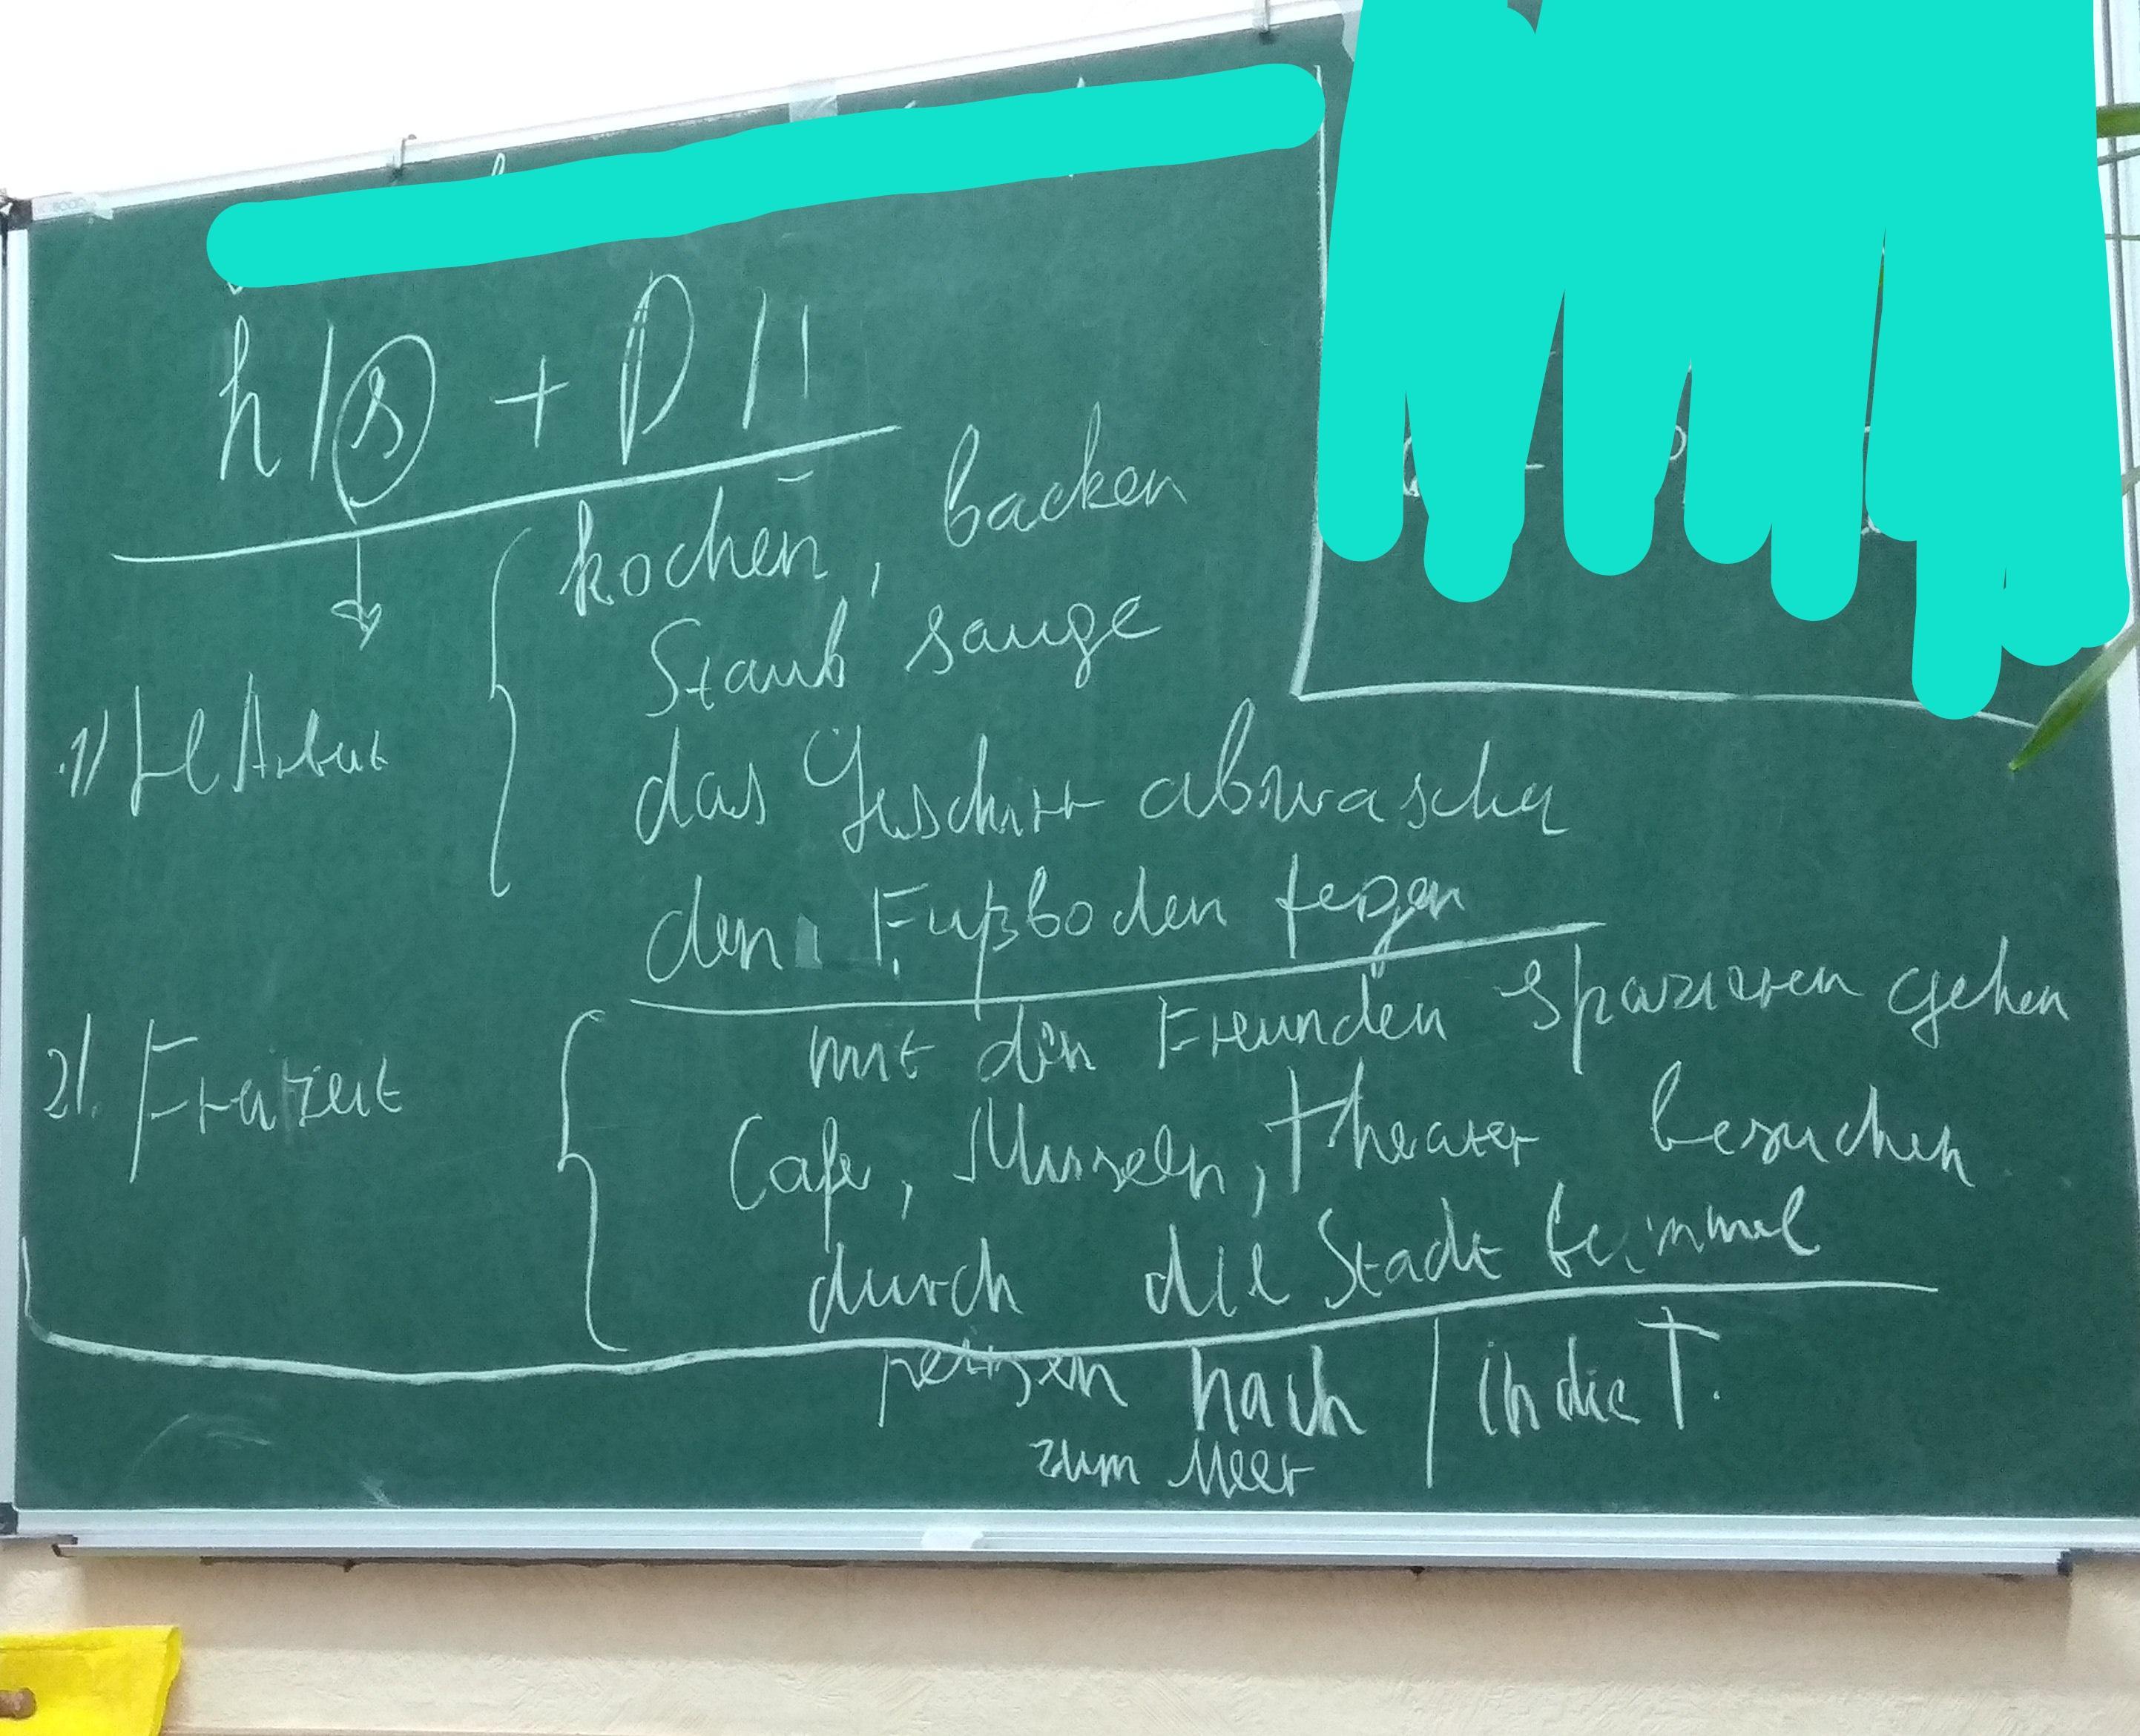 h/s + P II
kochen, backen
Staub sauge
1) Arbeit
das Geschirr abwaschen
den Fußboden fegen
mit den Freunden spazieren gehen
2). Freizeit
Cafe, Museen, Theater besuchen
durch die Stadt bummel
reisen nach / in die T.
zum Meer